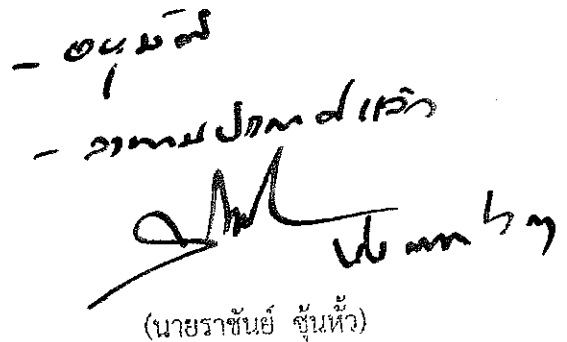 - อนุมัติ
- ลงนามประกาศแล้ว
(นายราชันย์ ซุ้นหั้ว)